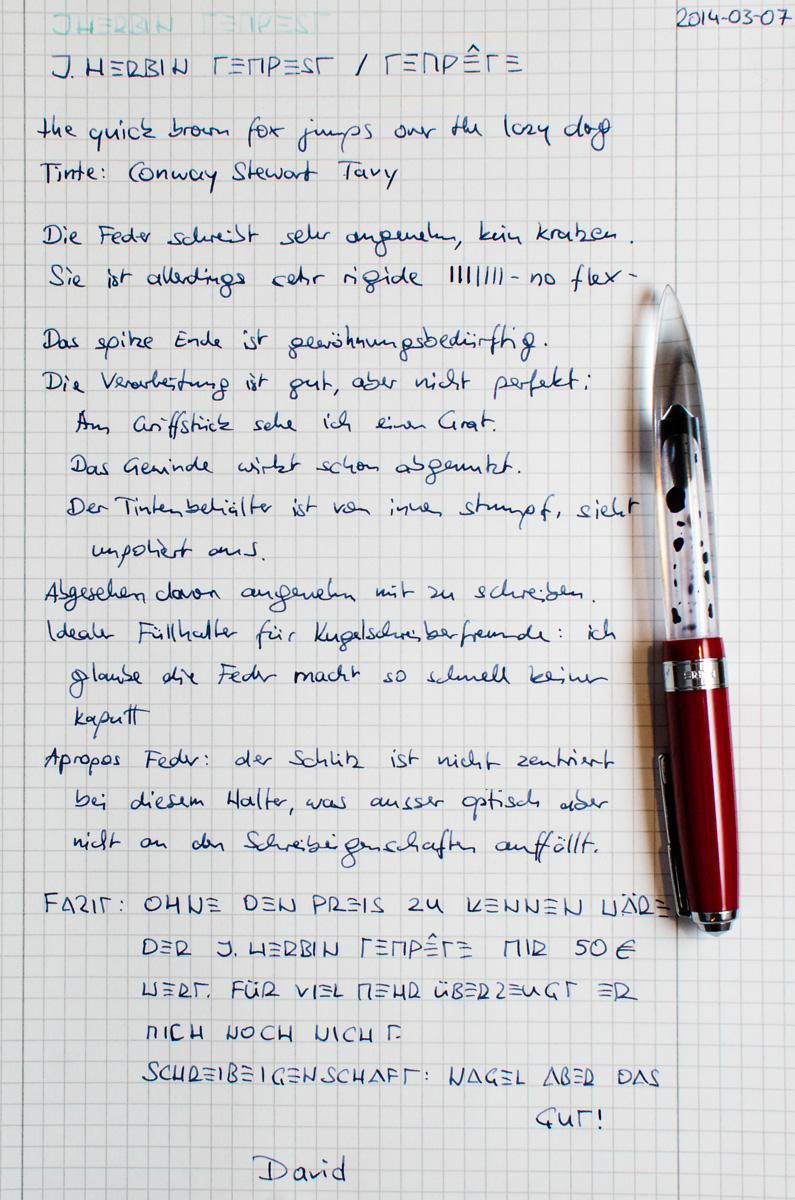 2014-03-07
J. HERBIN TEMPEST
J. HERBIN TEMPEST / TEMPÊTE
the quick brown fox jumps over the lazy dog
Tinte: Conway Stewart Tavy
Die Feder schreibt sehr angenehm, kein kratzen.
Sie ist allerdings sehr rigide |||||||| - no flex -
Das spitze Ende ist gewöhnungsbedürftig.
Die Verarbeitung ist gut, aber nicht perfekt:
Am Griffstück sehe ich einen Grat.
Das Gewinde wirkt schon abgenutzt.
Der Tintenbehälter ist von innen stumpf, sieht
unpoliert aus.
Abgesehen davon angenehm mit zu schreiben.
Idealer Füllhalter für Kugelschreiberfreunde: ich
glaube die Feder macht so schnell keiner
kaputt
Apropos Feder: der Schlitz ist nicht zentriert
bei diesem Halter, was ausser optisch aber
nicht an den Schreibeigenschaften auffällt.
FAZIT: OHNE DEN PREIS ZU KENNEN WÄRE
DER J. HERBIN TEMPÊTE MIR 50 €
WERT. FÜR VIEL MEHR ÜBERZEUGT ER
MICH NOCH NICHT.
SCHREIBEIGENSCHAFT: NAGEL ABER DAS
GUT!
David